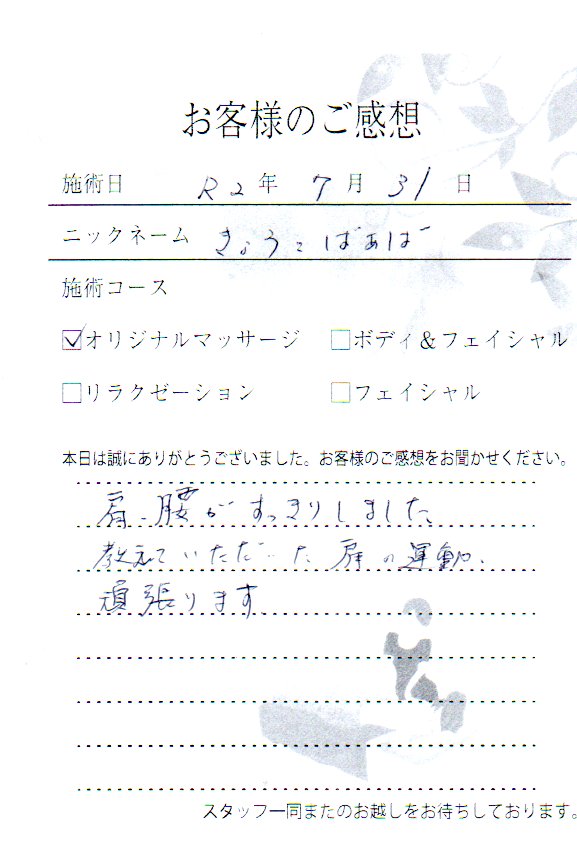 お客様のご感想
施術日 R2年 7月 31日
ニックネーム きょうこばぁば
施術コース
オリジナルマッサージ ボディ&フェイシャル
リラクゼーション フェイシャル
本日は誠にありがとうございました。お客様のご感想をお聞かせください。
肩、腰がすっきりしました。
教えていただいた肩の運動、
頑張ります
スタッフ一同またのお越しをお待ちしております。